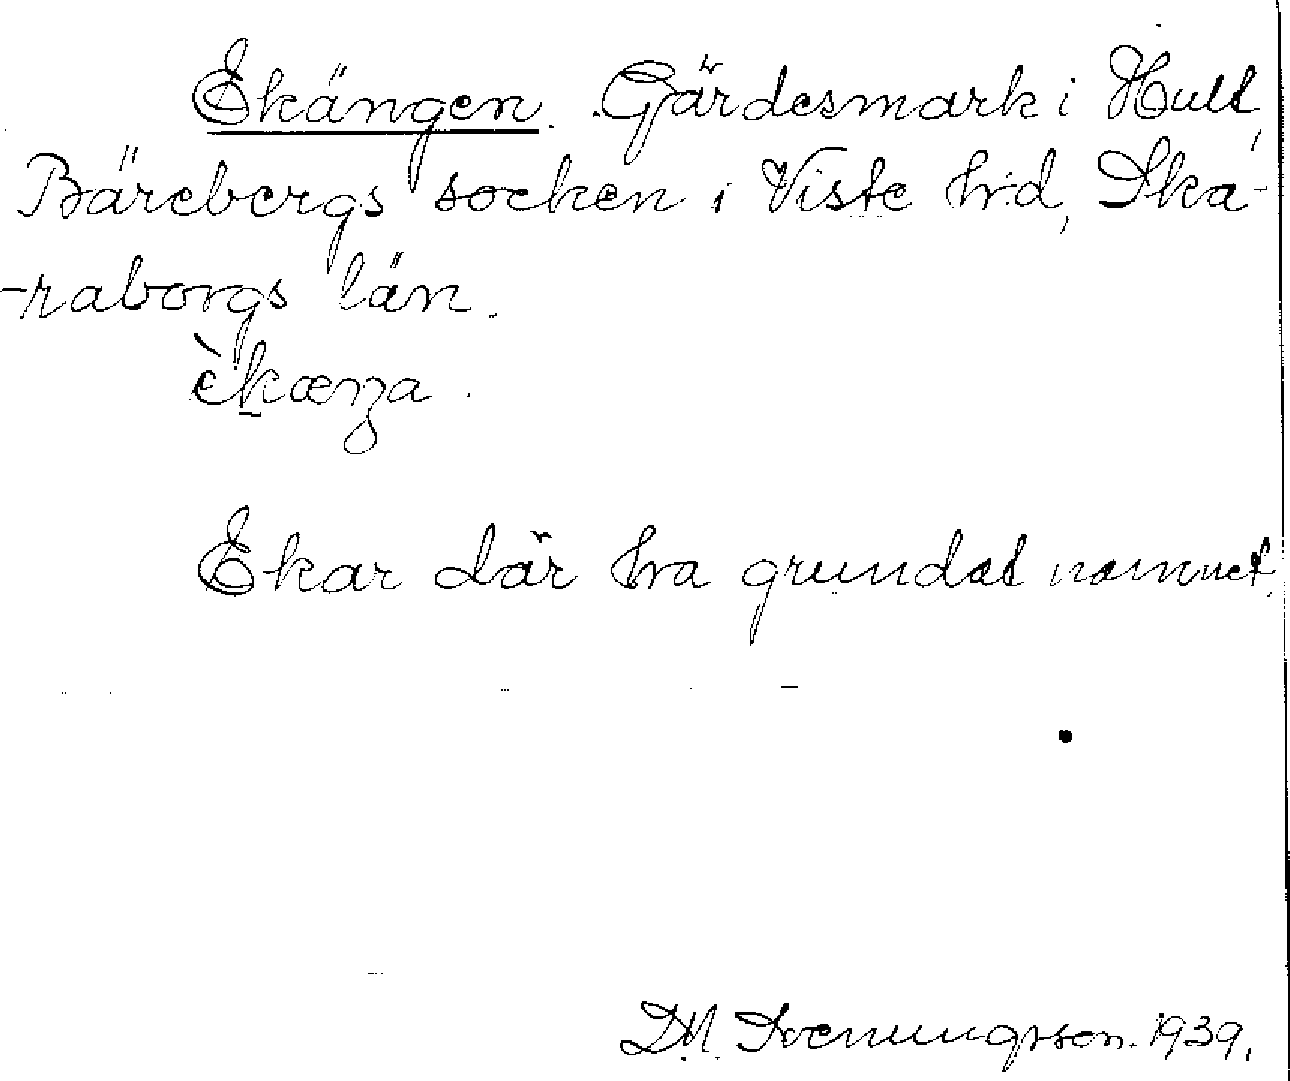 Ekängen. Gärdesmark i Hult,
Bärebergs socken i Viste h:d, Ska-
-raborgs län.
èkæŋa.
Ekar där ha grundat namnet.
D.M. Svenungsson. 1939.